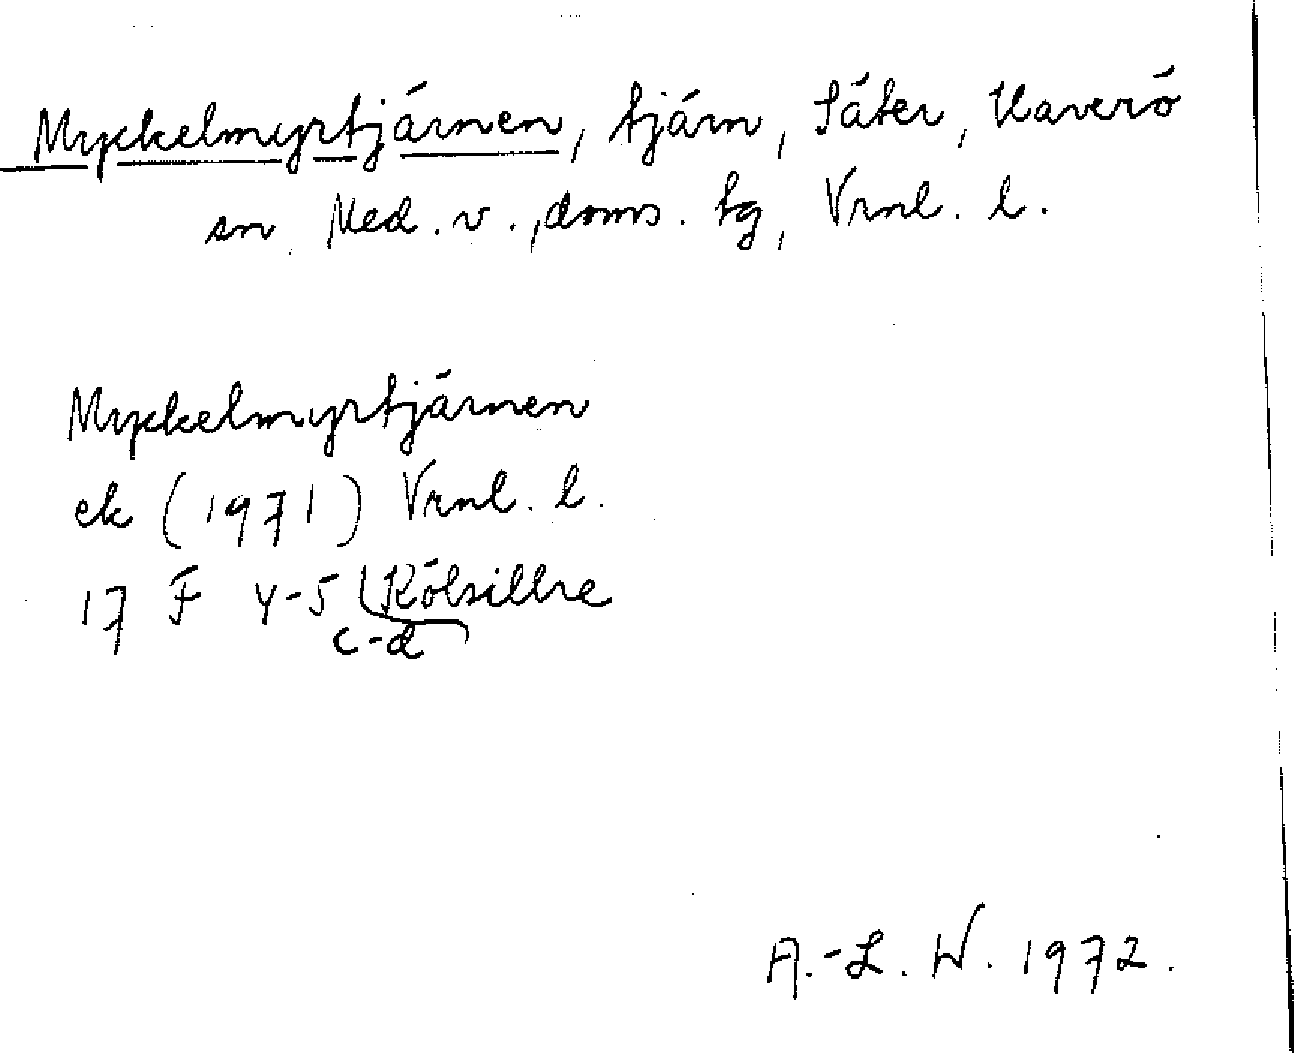 Myckelmyrtjärnen, tjärn, Säter, Haverö
sn, Med. v., doms. tg, Vrnl. l.
Myckelmyrtjärnen
ek (1971) Vrnl. l.
17 F 4-5 Kölsillre
c-d
A.-L. W. 1972.